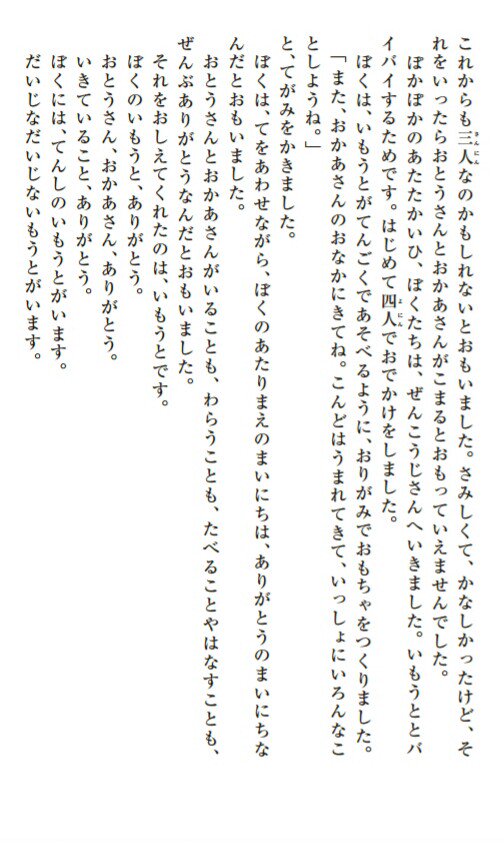 これからも三人なのかもしれないとおもいました。さみしくて、かなしかったけど、そ
れをいったらおとうさんとおかあさんがこまるとおもっていえませんでした。
ぽかぽかのあたたかいひ、ぼくたちは、ぜんこうじさんへいきました。いもうととバ
イバイするためです。はじめて四人でおでかけをしました。
ぼくは、いもうとがてんごくであそべるように、おりがみでおもちゃをつくりました。
「また、おかあさんのおなかにきてね。こんどはうまれてきて、いっしょにいろんなこ
としようね。」
と、てがみをかきました。
ぼくは、てをあわせながら、ぼくのあたりまえのまいにちは、ありがとうのまいにちな
んだとおもいました。
おとうさんとおかあさんがいることも、わらうことも、たべることやはなすことも、
ぜんぶありがとうなんだとおもいました。
それをおしえてくれたのは、いもうとです。
ぼくのいもうと、ありがとう。
おとうさん、おかあさん、ありがとう。
いきていること、ありがとう。
ぼくには、てんしのいもうとがいます。
だいじなだいじないもうとがいます。